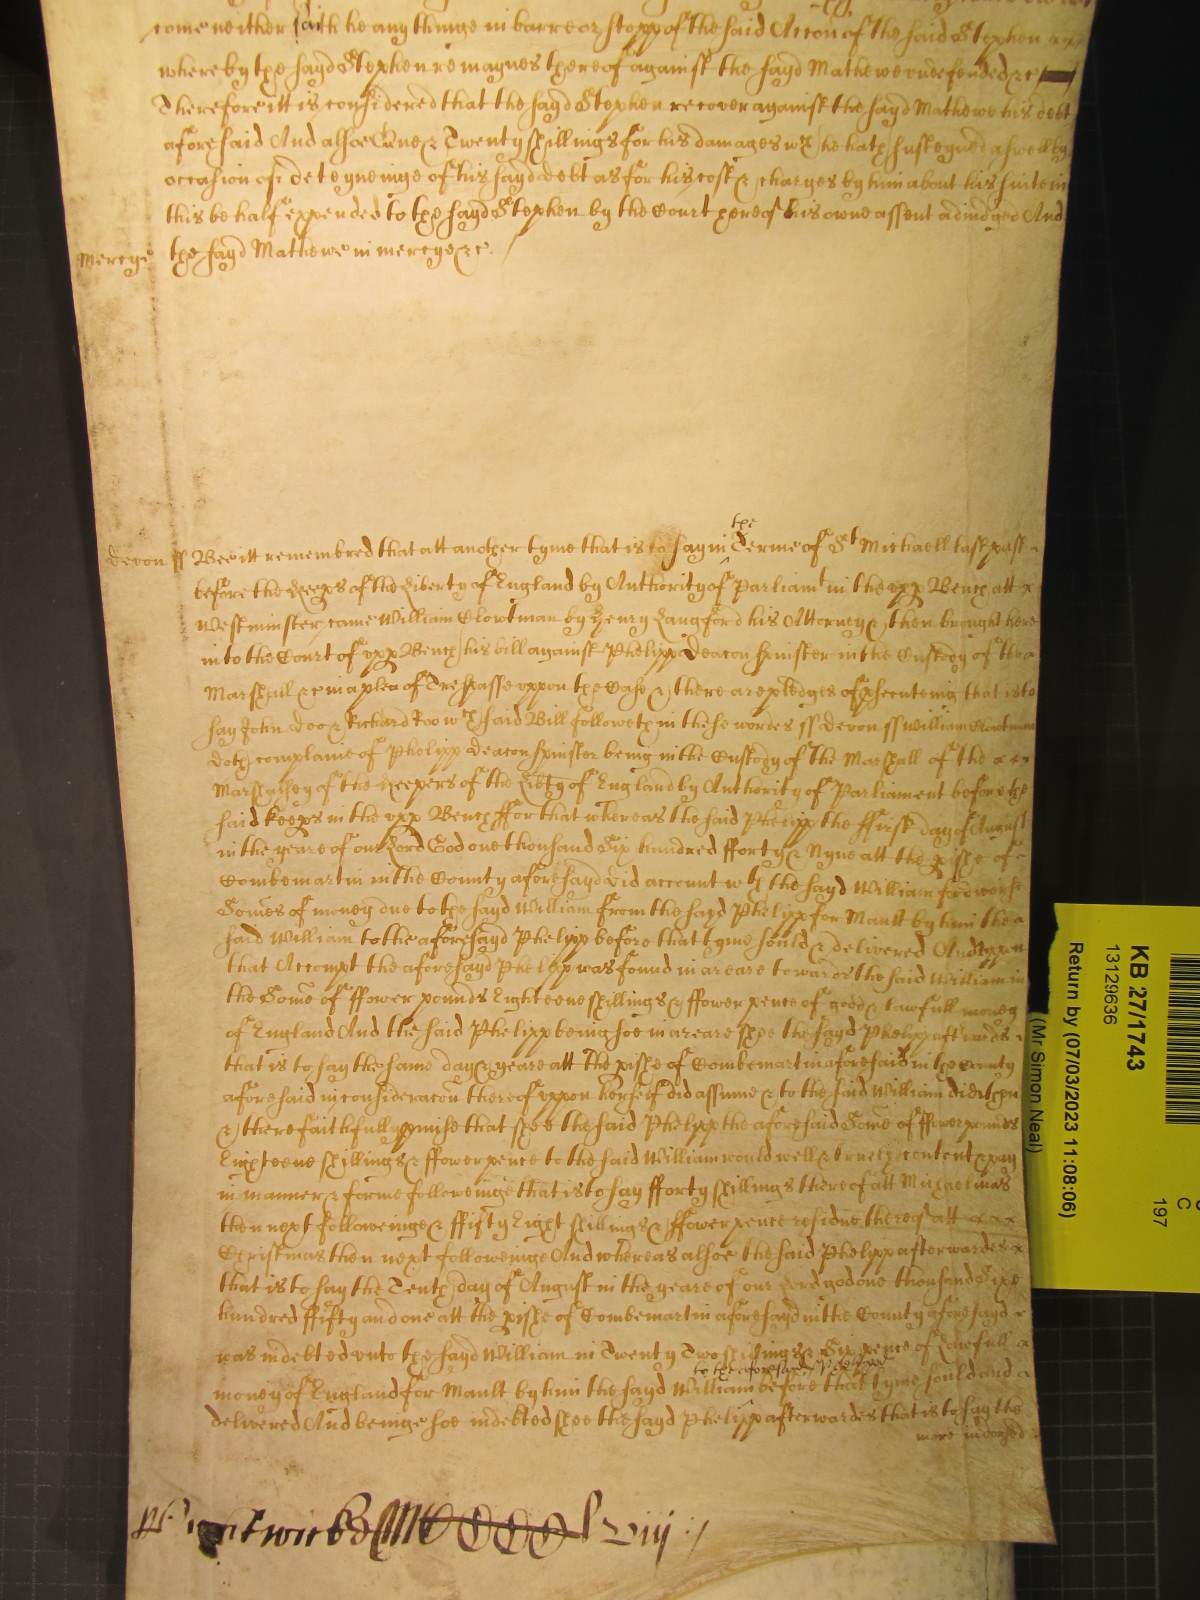 come neither saith he any thinge in barre or stopp of the said Accon of the said Stephen
whereby the sayd Stephen remaynes thereof against the sayd Mathewe undefended &c
Therefore itt is considered that the sayd Stephen recover against the sayd Mathewe his debt
aforesaid And alsoe One & Twenty shillings for his damages wch he hath susteyned aswell by
occasion of deteyneinge of his sayd debt as for his costs & charges by him about his suite in
this behalf expended to the sayd Stephen by the Court here of his owne assent adiudged And
Mercye the sayd Mathewe in mercye &c.
the
Devon ss Bee itt remembred that att another tyme that is to say in Terme of St Michaell last past
before the Keeps of the Liberty of England by Authority of Parliamt in the upp Bench att
Westminster came William Clowtman by Henry Langford his Attorney & then brought here
into the Court of upp Bench his bill against Phelipp Deacon Spinster in the Custody of the
Marshall &c in a plea of Trespasse uppon the Case & there are pledges of psecuteing that is to
say John Doe & Richard Roo wch said Bill followeth in these wordes ss Devon ss William Clowtman
doth complaine of Phelipp Deacon Spinster being in the Custody of the Marshall of the
Marshalsey of the Keepers of the Libty of England by Authority of Parliament before the
said Keeps in the upp Bench ffor that whereas the said Phelipp the ffirst day of August
in the yeare of our Lord God one thousand Six hundred fforty & Nyne att the pishe of
Combemartin in the County aforesayd did account wth the sayd William for diverse
Somes of money due to the sayd William from the sayd Phelipp for Mault by him the
said William to the aforesayd Phelipp before that tyme sould & delivered And uppon
that Accompt the aforesayd Phelipp was found in areare towards the said William in
the Some of ffower pounds Eighteene shillings & ffower pence of good & lawfull money
of England And the said Phelipp being soe in areare shee the sayd Phelipp aftwards
that is to say the same day & yeare att the pishe of Combemartin aforesaid in the County
aforesaid in consideracon thereof uppon herself did assume & to the said William did then
& there faithfully pmise that shee the said Phelipp the aforesaid Some of ffower pounds
Eighteene shillings & ffower pence to the said William would well & truely content & pay
in manner & forme followeinge that is to say fforty shillings thereof att Michaelmas
then next followeinge & ffifty Eight shillings & ffower pence residue thereof att
Christmas then next followeinge And whereas alsoe the said Phelipp afterwardes
that is to say the Tenth day of August in the yeare of our Lord god one thousand Sixe
hundred ffifty and one att the pishe of Combemartin aforesayd in the County aforesayd
was indebted unto the sayd William in Twenty Two shillings & Six pence of Lawfull
to the aforesayd Phelipp
money of England for Mault by him the sayd William before that tyme sould and
delivered And beinge soe indebted shee the sayd Phelipp afterwardes that is to say the
more indorsed
KB 27/1743
13129636
Return by (07/03/2023 11:08:06)
(Mr Simon Neal)
197
C